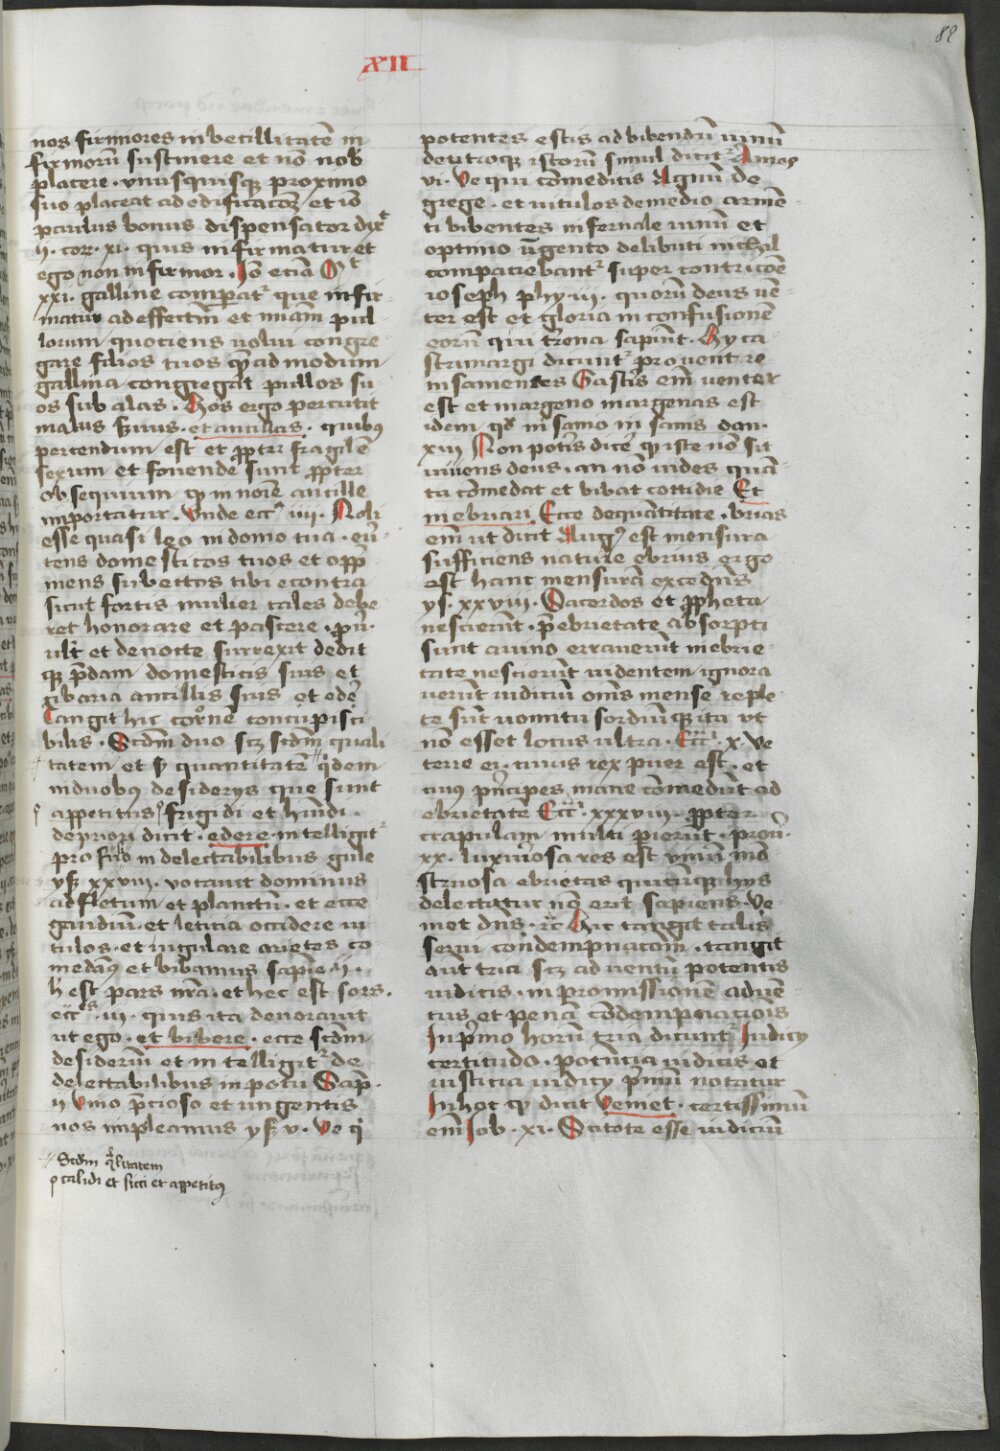 82
XII
nos firmiores inbecillitatē in
firmorū sustinere et nō nob̄
placere · vnusquisqꝫ proximo
suo placeat ad edificacōꝫ et iō
paulus bonus dispensator dix̄t
ii · cor · xi · quis infirmatur et
ego non infirmor · Iō etiā Mt
xxi · galline comparatꝛ que infir
matur ad effectum et miām pul
lorum quociens uolui congre
gare filios tuos quēadmodum
gallina congregat pullos su
os sub alas · Hos ergo percutit
malus seruus · et ancillas · quibꝯ
percendum est et ꝓpter fragilē
sexum et fouende sunt ꝓpter
obsequium qꝫ in noīe ancille
importatur · Vnde eccꝭ iiii · Noli
esse quasi leo in domo tua · euꝭ
tens domesticos tuos et oppͥ
mens subectos tibi econtra
sicut fortis mulier tales debe
ret honorare et pascere · ꝓuꝭ
ult et de nocte surrexit dedit
qꝫ p̄dam domesticis suis et
cibaria ancillis suis et edeꝭ
Tangit hic corōnē concupisci
bilis · Scd̄m duo scꝫ scd̄m quali
tatem et sꝫ quantitatē qͥdem
in duobus desiderys que sunt
appetitus frigidi et humidi ·
de priori dicit · edere · intelligitꝛ
pro suo in delectabilibus gule
ysꝫ xxviii · vocauit dominus
ad fletum et planctū · et ecce
gaudiū · et leticia occidere ui
tulos · et iugulare arietes co
medāꝯ et bibamus sapīe ii ·
h̄ est pars nr̄a · et hec est sors ·
eccꝭ · iii · quis ita deuorauit
ut ego · et bibere · ecce scd̄m
desideriū et intelligitꝛ de
delectabilibus in potu Sap̄ ·
ii vino p̄cioso et ungentis
nos impleamus ysꝫ v · Ve qͥ
Scd̄m qͣlitatem
calidi et sicci et appetitꝯ
potentes estis ad bibendū uinū
de utroqꝫ istorū simul dicitꝛ Amos
vi · Ve qui cōmeditis Agnū de
grege · et uitulos de medio armē
ti bibentes in fernale uinū et
optimo ūgento delibuti nichil
compaciebantꝛ super contricōē
ioseph phy iii · quorū deus uē
ter est et gloria in confusionē
eorū qui tr̄ena sapiūt · Hy ca
strimargi dicuntꝛ pro uentre
insamentes Gastis em̄ uenter
est et margeno margenas est
idem qꝫ insanio insanis dan ·
xiiii Non potꝭ dicē qꝫ iste nō sit
uiuens deus · an nō uides quā
ta cōmedat et bibat cottidie Et
inebriari Ecce de quantitate · brias
em̄ ut dicit Augꝭ est mensura
sufficiens nature ebrius ergo
est hanc mensurā excedens
ys · xxviii · Sacerdos et ꝓpheta
nescierūt · p̄ ebrietate absorpti
sunt auino errauerūt in ebrie
tate nescierūt uidentem ignora
uerūt iudiciū oīns mense reple
te sūt uomitu sordiūqꝫ ita ut
nō esset locus ultra · Eccꝭ · x · ve
terre ei · cuius rex puer est · et
cuiꝯ p̄ncipes mane cōmedūt ad
ebrietatē Eccꝭ · xxxviii · ꝓpter
crapulam multi perierūt · prouꝭ ·
xx · luxuriosa res est vinū tu
multuosa ebrietas quicūqꝫ hys
delectatur nō erit sapiens · Ve
niet dn̄s · ꝛc̄ · Hic tangit talis
serui condempnacōm · tangit
aut tria scꝫ aduentū potentis
iudicis · inpromissionē aduē
tus et penā cōdempnacōis
In p̄mo horū tria dicuntꝛ Iudicy
certitudo · potencia iudicis et
iusticia iudicy p̄mū notatur
In hoc qꝫ dicit Veniet · certissimū
em̄ Iob · xi · Scitote esse iudiciū